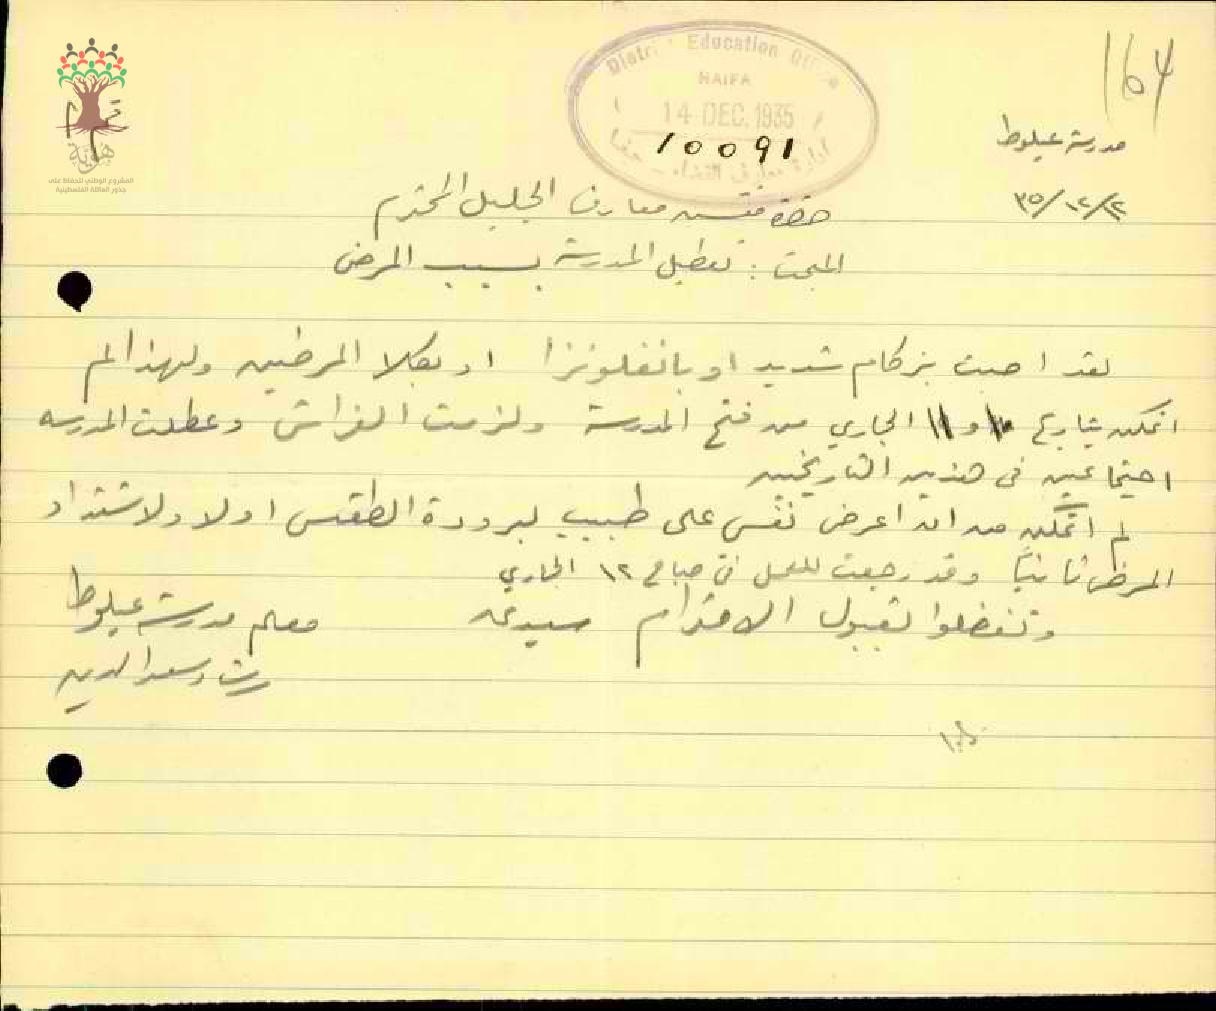 164
District Education Office
HAIFA
14 DEC. 1935
10091
مدرسة عيلوط
٣٥/١٢/١٢
حضرة مفتش معارف الجليل المحترم
المبحث : تعطيل المدرسة بسبب المرض
لقد اصبت بزكام شديد او بانفلونزا او بكلا المرضين ولهذا لم
اتمكن بتاريخ ١٠ و ١١ الجاري من فتح المدرسة ولزمت الفراش وعطلت المدرسه
اجتماعين في هذين التاريخين
لم اتمكن من ان اعرض نفسي على طبيب لبرودة الطقس اولا ولاشتداد
المرض ثانيًا وقد رجعت للعمل في صباح ١٢ الجاري
وتفضلوا بقبول الاحترام سيدي
معلم مدرسة عيلوط
رشاد سعد الدين
هوية
المشروع الوطني للحفاظ على
جذور العائلة الفلسطينية